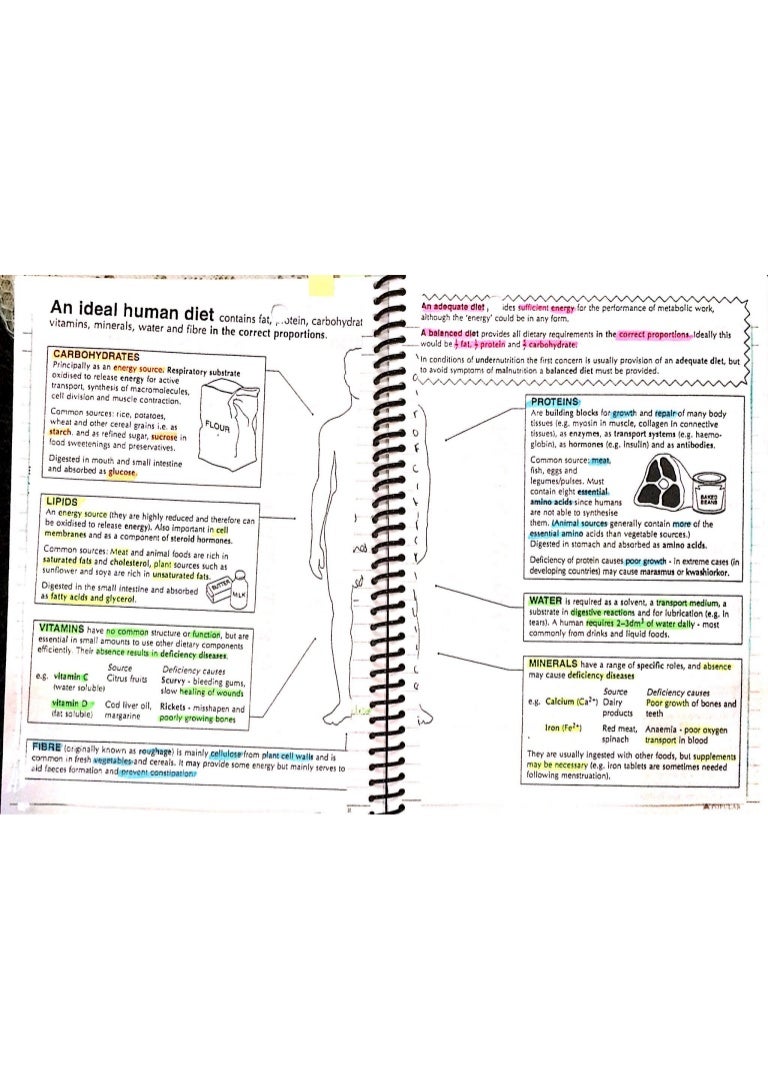 An ideal human diet contains fat, protein, carbohydrat
vitamins, minerals, water and fibre in the correct proportions.
CARBOHYDRATES
Principally as an energy source. Respiratory substrate
oxidised to release energy for active
transport, synthesis of macromolecules,
cell division and muscle contraction.
Common sources: rice, potatoes,
wheat and other cereal grains i.e. as
starch, and as refined sugar, sucrose in
food sweetenings and preservatives.
Digested in mouth and small intestine
and absorbed as glucose.
FLOUR
LIPIDS
An energy source (they are highly reduced and therefore can
be oxidised to release energy). Also important in cell
membranes and as a component of steroid hormones.
Common sources: Meat and animal foods are rich in
saturated fats and cholesterol, plant sources such as
sunflower and soya are rich in unsaturated fats.
Digested in the small intestine and absorbed
as fatty acids and glycerol.
BUTTER
MILK
VITAMINS have no common structure or function, but are
essential in small amounts to use other dietary components
efficiently. Their absence results in deficiency diseases.
Source Deficiency causes
e.g. vitamin C Citrus fruits Scurvy - bleeding gums,
(water soluble) slow healing of wounds
vitamin D Cod liver oil, Rickets - misshapen and
(fat soluble) margarine poorly growing bones
FIBRE (originally known as roughage) is mainly cellulose from plant cell walls and is
common in fresh vegetables and cereals. It may provide some energy but mainly serves to
aid faeces formation and prevent constipation.
An adequate diet, ides sufficient energy for the performance of metabolic work,
although the 'energy' could be in any form.
A balanced diet provides all dietary requirements in the correct proportions. Ideally this
would be fat, protein and carbohydrate.
In conditions of undernutrition the first concern is usually provision of an adequate diet, but
to avoid symptoms of malnutrition a balanced diet must be provided.
PROTEINS
Are building blocks for growth and repair of many body
tissues (e.g. myosin in muscle, collagen in connective
tissues), as enzymes, as transport systems (e.g. haemo-
globin), as hormones (e.g. insulin) and as antibodies.
Common source: meat,
fish, eggs and
legumes/pulses. Must
contain eight essential
amino acids since humans
are not able to synthesise
them. (Animal sources generally contain more of the
essential amino acids than vegetable sources.)
Digested in stomach and absorbed as amino acids.
Deficiency of protein causes poor growth - in extreme cases (in
developing countries) may cause marasmus or kwashiorkor.
BAKED
BEANS
WATER is required as a solvent, a transport medium, a
substrate in digestive reactions and for lubrication (e.g. in
tears). A human requires 2–3dm³ of water daily - most
commonly from drinks and liquid foods.
MINERALS have a range of specific roles, and absence
may cause deficiency diseases
Source Deficiency causes
e.g. Calcium (Ca²⁺) Dairy Poor growth of bones and
products teeth
Iron (Fe²⁺) Red meat, Anaemia - poor oxygen
spinach transport in blood
They are usually ingested with other foods, but supplements
may be necessary (e.g. iron tablets are sometimes needed
following menstruation).
POPULAR